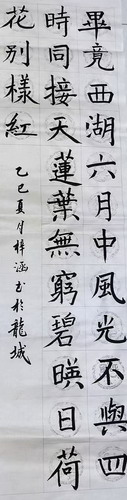 畢竟西湖六月中風光不與四
時同接天蓮葉無窮碧暎日荷
花別樣紅
乙巳夏月梓涵书於龍城